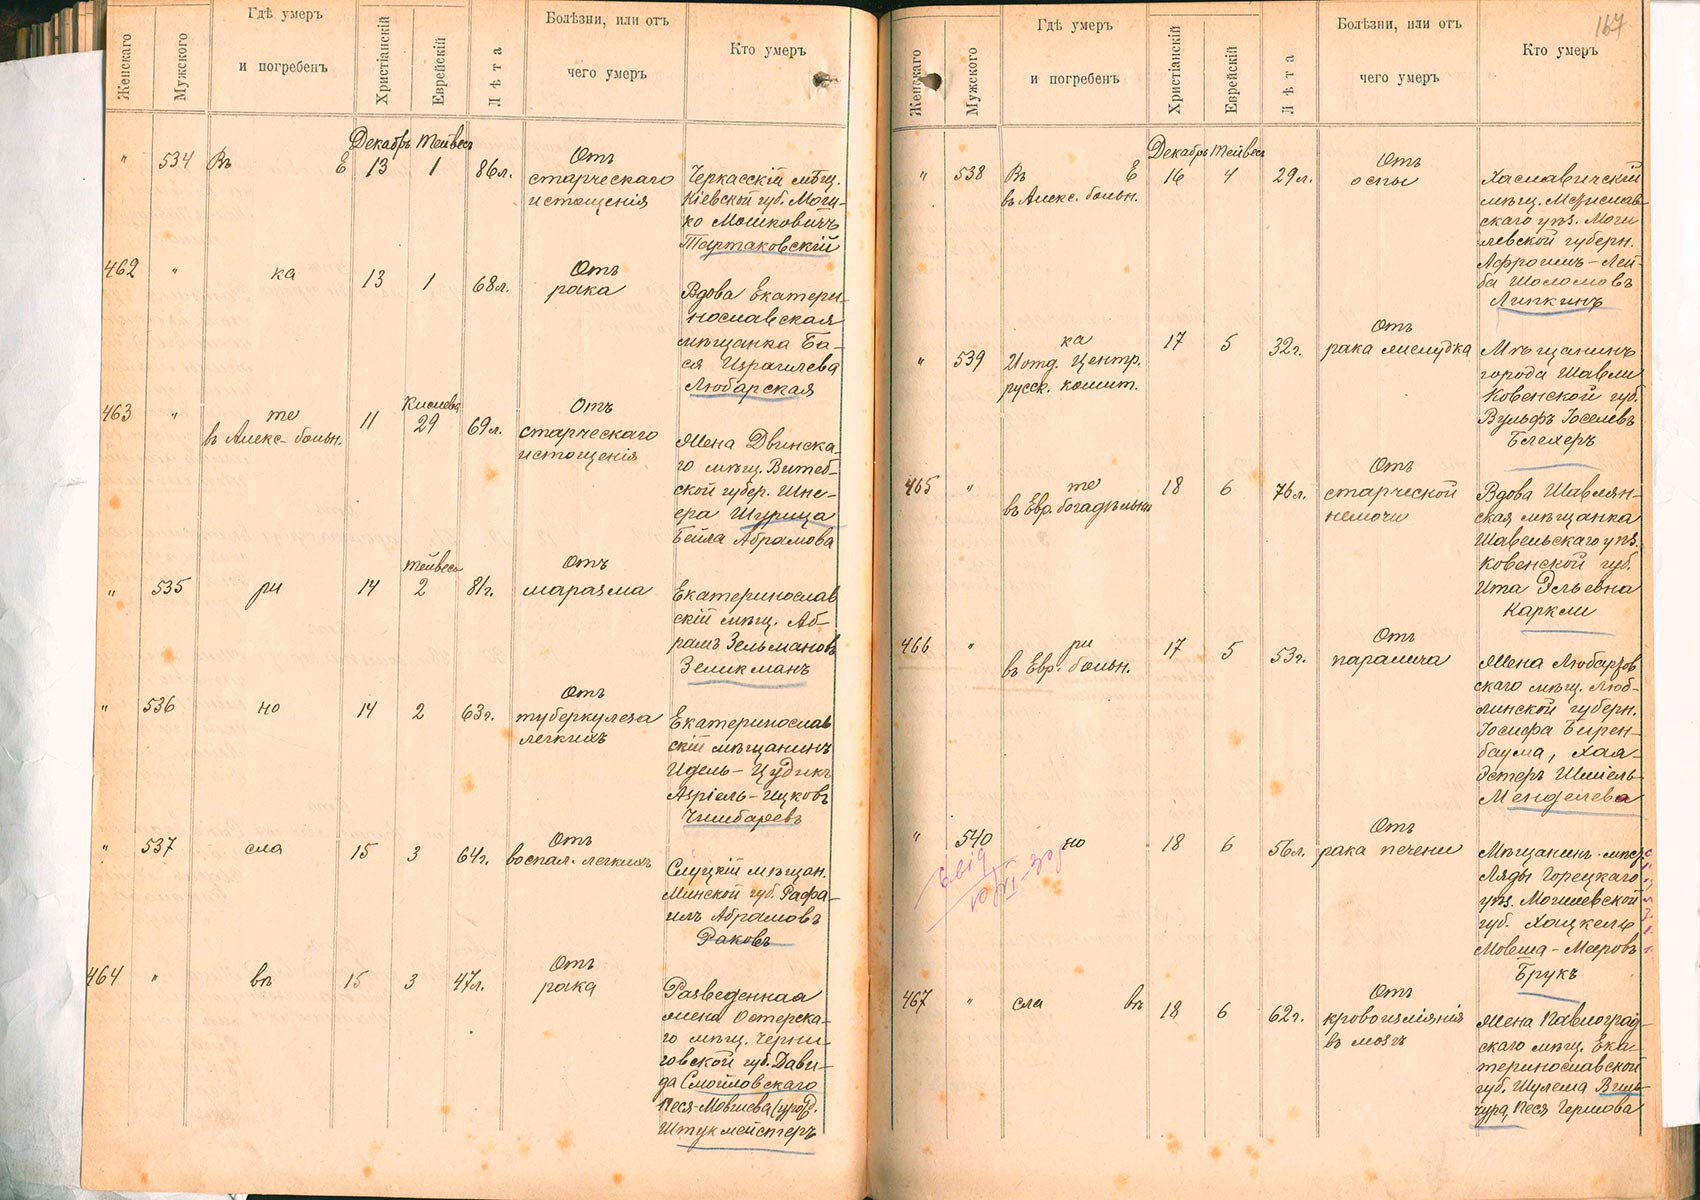 Женскаго
Мужского
Гдѣ умеръ
и погребенъ
Христіанскій
Еврейскій
Лѣта
Болѣзни, или отъ
чего умеръ
Кто умеръ
Декабрь Тейвесъ
" 534 Въ Е 13 1 86 л.
Отъ
старческаго
истощенія
Черкасскій мѣщ.
Кіевской губ. Мош-
ко Мошковичъ
Тартаковскій
462 " ка 13 1 68 л.
Отъ
рака
Вдова Екатери-
нославская
мѣщанка Ба-
ся Израилева
Любарская
463 " те
въ Алекс. больн.
11
Кислева
29
69 л.
Отъ
старческаго
истощенія
Жена Двинска-
го мѣщ. Витеб-
ской губер. Шне-
ера Шурица
Бейла Абрамова
" 535 ри 14
Тейвесъ
2
81 г.
Отъ
маразма
Екатеринослав
скій мѣщ. Аб-
рамъ Зельмановъ
Зеликманъ
" 536 но 14 2 63 г.
Отъ
туберкулеза
легкихъ
Екатеринослав
скій мѣщанинъ
Идель-Цудикъ
Азріель-Ицковъ
Чимбаревъ
" 537 сла 15 3 64 г.
Отъ
воспал. легкихъ
Слуцкій мѣщан.
Минской губ. Рафа-
илъ Абрамовъ
Раковъ
464 " въ 15 3 47 л.
Отъ
рака
Разведенная
жена Остерска-
го мѣщ. Черни-
говской губ. Дави-
да Смоиловскаго
Песя-Мовшева (урожд.
Штукмейстеръ
167
Женскаго
Мужского
Гдѣ умеръ
и погребенъ
Христіанскій
Еврейскій
Лѣта
Болѣзни, или отъ
чего умеръ
Кто умеръ
Декабрь Тейвесъ
" 538 Въ Е 16 4 29 л.
въ Алекс. больн.
Отъ
оспы
Хаславичскій
мѣщ. Мстислав-
скаго уѣз. Моги
левской губерн.
Афроимъ-Лей-
ба Шоломовъ
Липкинъ
" 539 ка 17 5 32 г.
И отд. Центр.
русск. комит.
Отъ
рака желудка
Мѣщанинъ
города Шавли
Ковенской губ.
Вульфъ Іоселевъ
Блехеръ
465 " те 18 6 76 л.
въ Евр. богадѣльни
Отъ
старческой
немочи
Вдова Шавлян-
ская мѣщанка
Шавельскаго уѣз.
Ковенской губ.
Ита Эльевна
Каркли
466 " ри 17 5 53 г.
въ Евр. больн.
Отъ
паралича
Жена Любартов
скаго мѣщ. Люб-
линской губерн.
Іосифа Бирен-
баума, Хая-
Эстеръ Шміель-
Менделева
" 540 но 18 6 56 л.
Отъ
рака печени
Мѣщанинъ мѣст.
Ляды Горецкаго
уѣз. Могилевской
губ. Хацкель
Мовша-Мееровъ
Брукъ
467 " сла въ 18 6 62 г.
Отъ
кровоизліянія
въ мозгъ
Жена Павлоград-
скаго мѣщ. Ека-
теринославской
губ. Шулема Виль-
чура Песя Гершова